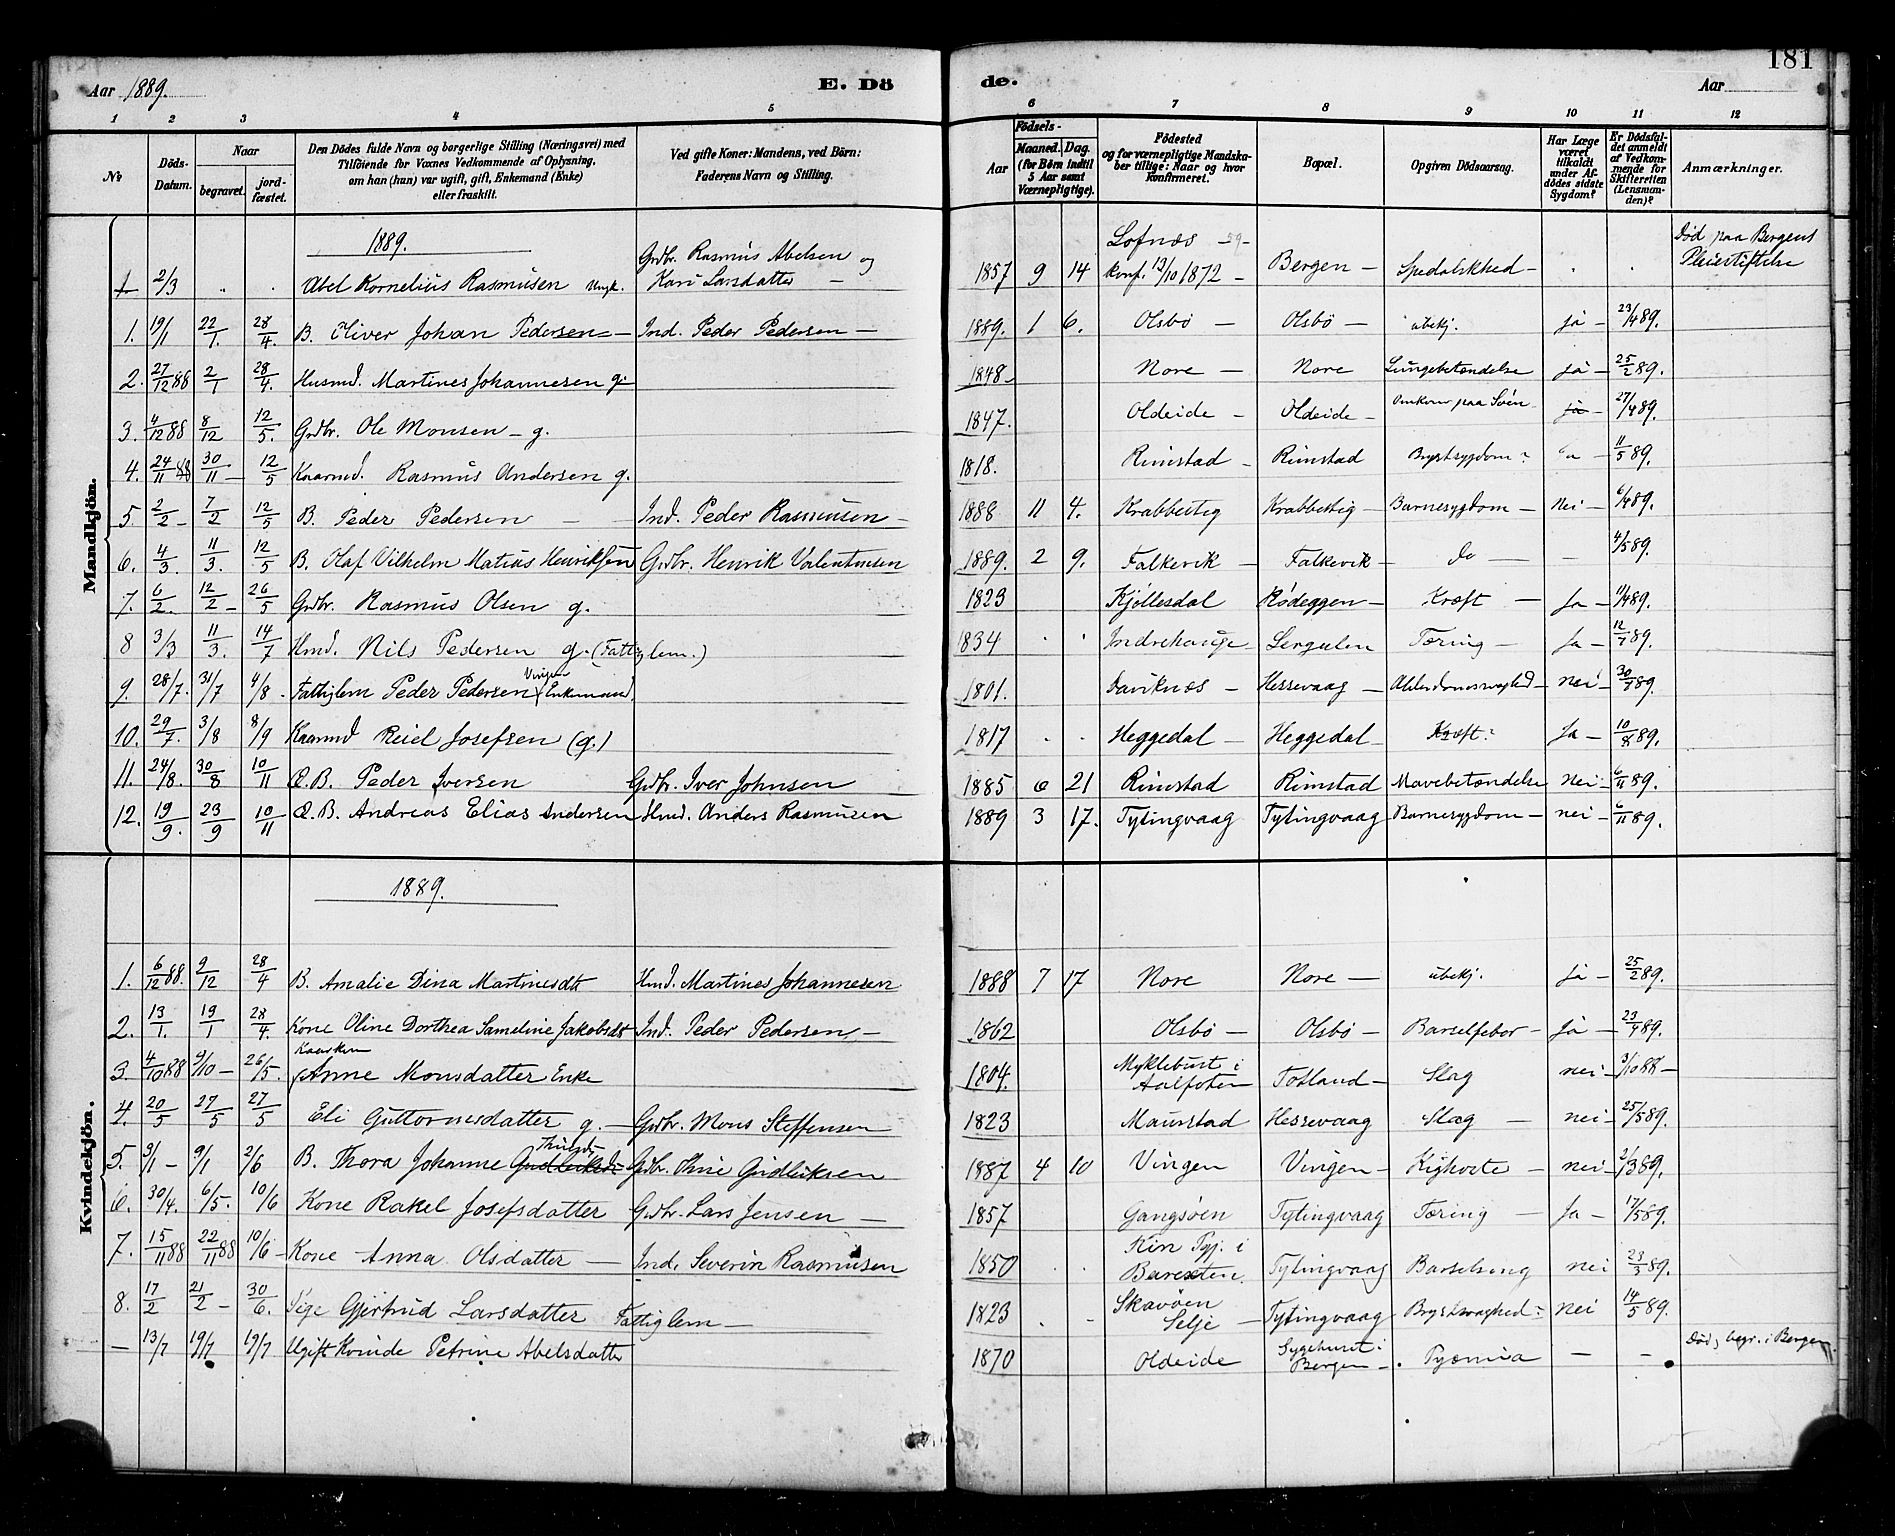 181
Aar 1889. E. Dö de. Aar
1 2 3 4 5 6 7 8 9 10 11 12
No
Döds-Datum.
Naar
begravet. jordfæstet.
Den Dödes fulde Navn og borgerlige Stilling (Næringsvei) med
Tilföiende for Voxnes Vedkommende af Oplysning,
om han (hun) var ugift, gift, Enkemand (Enke)
eller fraskilt.
Ved gifte Koner: Mandens, ved Börn:
Faderens Navn og Stilling.
Födsels-
Aar Maaned. Dag.
(for Börn indtil
5 Aar samt
Værnepligtige).
Födested
og for værnepligtige Mandska-
ber tillige: Naar og hvor
konfirmeret.
Bopæl.
Opgiven Dödsaarsag.
Har Læge
været
tilkaldt
under Af-
dödes sidste
Sygdom?
Er Dödsfal-
det anmeldt
af Vedkom-
mende for
Skifteretten
(Lensman-
den)?
Anmærkninger.
Mandkjön.
1889.
Grdbr. Rasmus Abelsen og Lofnæs Død paa Bergens
1. 2/3 Abel Kornelius Rasmusen Ungk. Kari Larsdatter 1857 9 14 konf. 13/10 1872 Bergen Spedalskhed Pleiestiftelse
1. 19/1 22/1. 28/4. B. Oliver Johan Pedersen Ind. Peder Pedersen 1889. 1 6. Olsbö Olsbö ubekj. ja 23/4 89.
2. 27/12 88 2/1 28/4. Husmd. Martines Johannesen g. 1848 Nore Nore Lungebetændelse ja 25/2 89.
3. 4/12 88 8/12 12/5. Grdbr. Ole Monsen g. 1847. Oldeide Oldeide Omkom paa Söen ja 27/4 89.
4. 24/11 88 30/11 12/5 Kaarmd. Rasmus Andersen g. 1818. Rimstad Rimstad Brystsygdom? 11/5 89.
5 2/2 7/2 12/5 B. Peder Pedersen Ind. Peder Rasmusen 1888 11 4. Krabbestig Krabbestig Barnesygdom Nei 6/4 89.
6. 4/3. 11/3. 12/5 B. Olaf Vilhelm Matias Henriksen Grdbr. Henrik Valentinsen 1889. 2 9. Falkevik Falkevik do 4/5 89.
7. 6/2. 12/2 26/5 Grdbr. Rasmus Olsen g. 1823 Kjöllesdal Rödeggen Kræft Ja 11/4 89.
8 3/3 11/3. 14/7 Hmd. Nils Pedersen g. (Fattiglem.) 1834 Indrehauge Tæring Ja 12/7 89.
9. 28/7. 31/7 4/8. Fattiglem Peder Pedersen Vingen (Enkemand) 1801. Daviknæs Hessevaag Alderdomssvaghed nei 30/7 89.
10. 29/7. 3/8 8/9 Kaarmd Reiel Josefsen (g.) 1817 Heggedal Heggedal Kræft? Ja 10/8 89.
11. 24/8. 30/8 10/11 Æ.B. Peder Iversen Grdbr. Iver Johnsen 1885 6 21 Rimstad Rimstad Mavebetændelse nei 6/11 89.
12. 19/9. 23/9 10/11 Æ.B. Andreas Elias Andersen Hmd. Anders Rasmusen 1889 3 17. Tytingvaag Tytingvaag Barnesygdom nei 6/11 89.
Kvindekjön.
1889.
1. 6/12 88. 9/12 28/4 B. Amalie Dina Martinesdtr Hmd. Martines Johannesen 1888 7 17 Nore Nore ubekj. ja 25/2 89.
2. 13/1. 19/1 28/4. Kone Oline Dorthea Sameline Jakobsdtr Ind. Peder Pedersen 1862 Olsbö Olsbö Barselfeber ja 23/4 89.
3. 4/10 88 9/10 26/5. Kaarkone Anne Monsdatter Enke 1804. Myklebust i Aalfoten Totland Slag nei 3/10 88
4. 20/5 27/5 27/5 Eli Guttormsdatter g. Grdbr. Mons Steffensen 1823 Maurstad Hessevaag Slag nei 25/5 89.
5. 3/1 9/1 2/6 B. Thora Johanne Gudleiksd. Grdbr. Thue Gudleiksen 1887 4 10 Vingen Vingen Kighoste nei 2/3 89.
6. 30/4. 6/5. 10/6 Kone Rakel Josefsdatter Grdbr. Lars Jensen 1857 Gangsöen Tytingvaag Tæring Ja 17/5 89.
7. 15/11 88 22/11 88 10/6 Kone Anna Olsdatter Ind. Severin Rasmusen 1850 Kin Pgj. i Tytingvaag Barselseng nei 23/3 89.
8. 17/2 21/2 30/6. Pige Gjertrud Larsdatter Fattiglem 1823 Skavöen Selje Tytingvaag Brystsvaghed? nei 14/5 89.
13/7 19/7 19/7 Ugift Kvinde Petrine Abelsdatter 1870 Oldeide Sygehuset i Bergen Pyæmia Död, begr. i Bergen